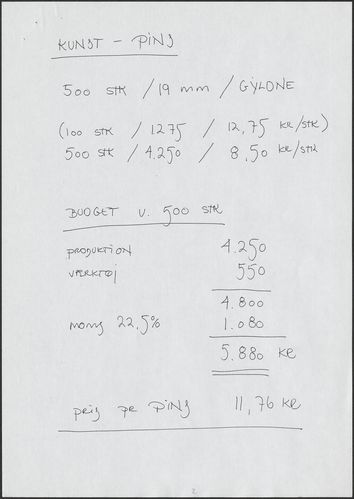 KUNST - PINS
500 stk / 19 mm / GYLDNE
(100 stk / 1275 / 12,75 kr/stk)
500 stk / 4.250 / 8,50 kr/stk
BUDGET v. 500 stk
PRODUKTION 4.250
VÆRKTØJ 550
4.800
moms 22,5% 1.080
5.880 kr
pris pr PINS 11,76 kr
2